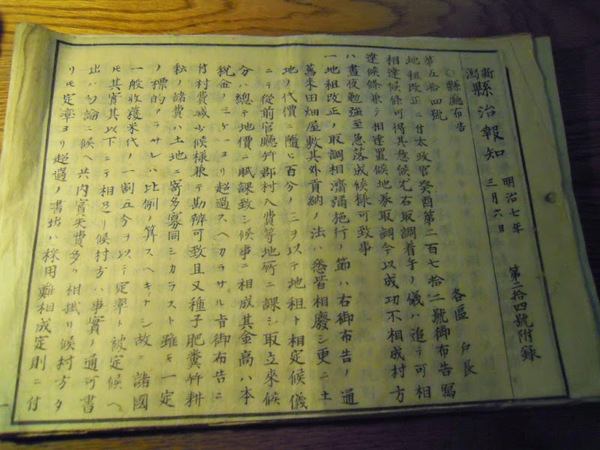 新潟縣治報知 明治七年三月六日 第二拾四號附錄
○縣廳布告
各區戸長
第五拾四號
地租改正ニ付太政官癸酉第二百七拾二號御布告寫
相達候條可得其意候尤右取調着手ノ儀ハ追テ可相
達候條兼テ相達置候地券取調今以成功不相成村方
ハ晝夜勉強至急落成候様可致事
一地租改正ノ取調相濟漸施行ノ節ハ右御布告ノ通
舊来田畑屋敷其外貢納ノ法ハ悉皆相廢シ更ニ土
地ノ代價ニ隨ヒ百分ノ三ヲ以テ地租ト相定候儀
ニテ從前官廳幷郡村入費等地所ニ課シ取立来候
分ハ總テ地價ニ賦課致シ候事ニ相成其金高ハ本
税金ノ三ケ一ヨリ超過スヘカラサル旨御布告ニ
付村費減少候様兼テ勘辨可致且又種子肥糞幷耕
耘ノ諸費ハ土地ニ寄多寡同シカラスト雖モ一定
ノ標的アラサレハ比例ノ算スヘキナシ故ニ諸國
一般收穫米代ノ一割五分ヲ以テ定率ト被定候ヘ
ㇳモ其實其以下ニテ相足リ候村方ハ事實ノ通可書
出ハ勿論ニ候ヘ共内實夫費多ク相掛リ候村方タ
リㇳモ定率ヨリ超過ノ書出ハ採用難相成定則ニ付